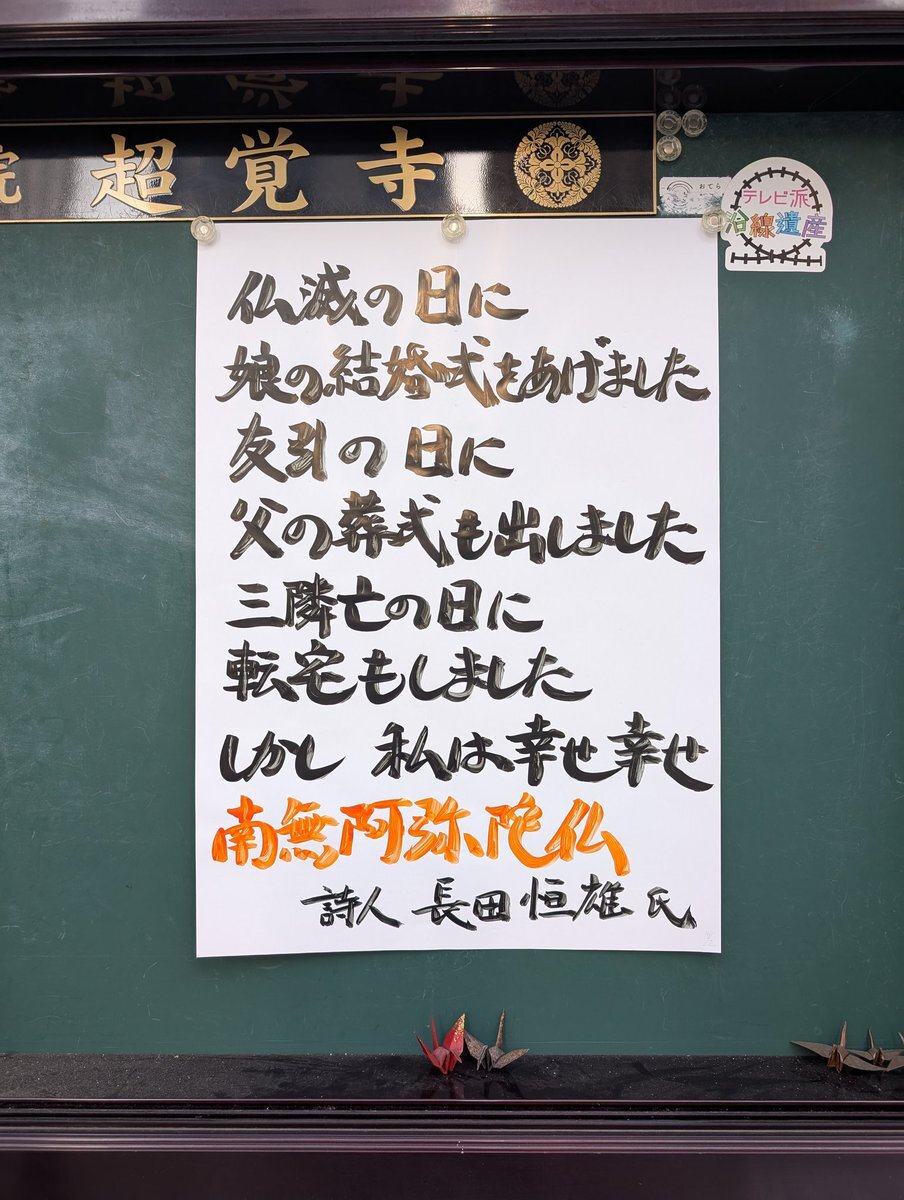 院 超覚寺
おてら
テレビ派
沿線遺産
仏滅の日に
娘の結婚式をあげました
友引の日に
父の葬式も出しました
三隣亡の日に
転宅もしました
しかし 私は幸せ幸せ
南無阿弥陀仏
詩人 長田恒雄 氏